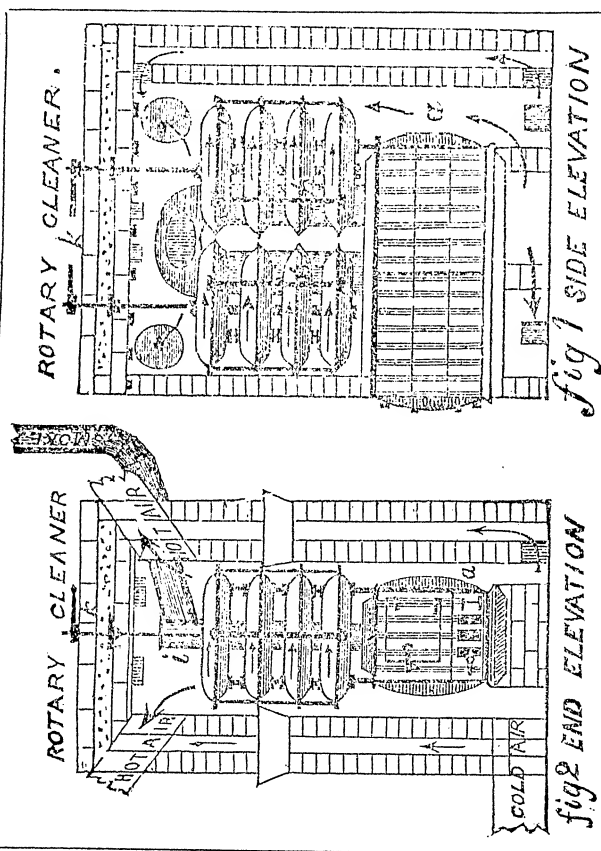 ROTARY CLEANER.
fig 1 SIDE ELEVATION
ROTARY CLEANER
SMOKE
HOT AIR
HOT AIR
i
a
COLD AIR
fig 2 END ELEVATION